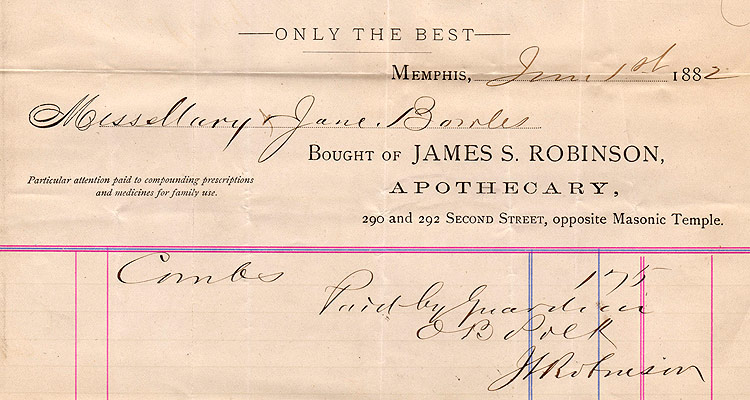 ONLY THE BEST
MEMPHIS, June 1st 1882
Miss Mary & Jane Bowles
BOUGHT OF JAMES S. ROBINSON,
Particular attention paid to compounding prescriptions
and medicines for family use.
APOTHECARY,
290 and 292 SECOND STREET, opposite Masonic Temple.
Combs 175
Paid by Guardian
O B Polk
Robinson